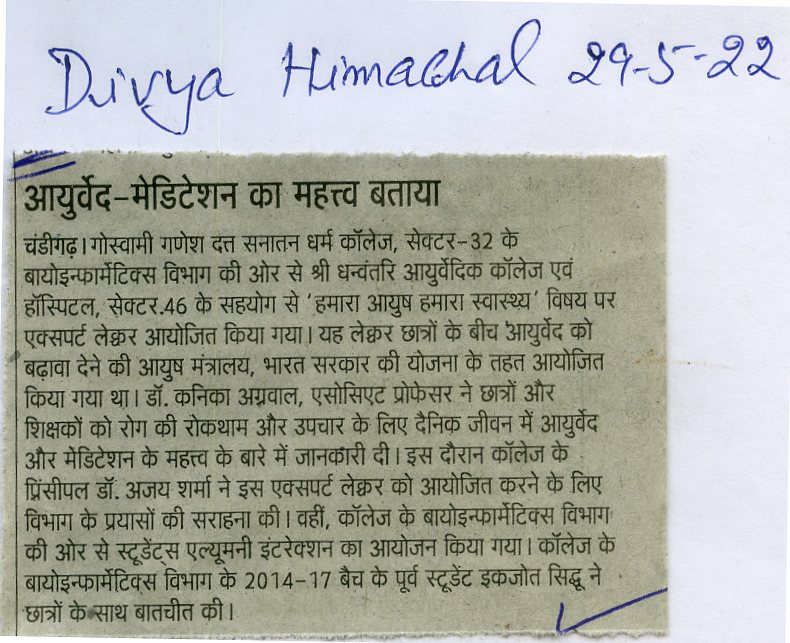 Divya Himachal 29-5-22
आयुर्वेद-मेडिटेशन का महत्त्व बताया
चंडीगढ़। गोस्वामी गणेश दत्त सनातन धर्म कॉलेज, सेक्टर-32 के
बायोइन्फार्मेटिक्स विभाग की ओर से श्री धन्वंतरि आयुर्वेदिक कॉलेज एवं
हॉस्पिटल, सेक्टर.46 के सहयोग से 'हमारा आयुष हमारा स्वास्थ्य' विषय पर
एक्सपर्ट लेक्चर आयोजित किया गया। यह लेक्चर छात्रों के बीच 'आयुर्वेद को
बढ़ावा देने की आयुष मंत्रालय, भारत सरकार की योजना के तहत आयोजित
किया गया था। डॉ. कनिका अग्रवाल, एसोसिएट प्रोफेसर ने छात्रों और
शिक्षकों को रोग की रोकथाम और उपचार के लिए दैनिक जीवन में आयुर्वेद
और मेडिटेशन के महत्त्व के बारे में जानकारी दी। इस दौरान कॉलेज के
प्रिंसीपल डॉ. अजय शर्मा ने इस एक्सपर्ट लेक्चर को आयोजित करने के लिए
विभाग के प्रयासों की सराहना की। वहीं, कॉलेज के बायोइन्फार्मेटिक्स विभाग
की ओर से स्टूडेंट्स एल्यूमनी इंटरेक्शन का आयोजन किया गया। कॉलेज के
बायोइन्फार्मेटिक्स विभाग के 2014-17 बैच के पूर्व स्टूडेंट इकजोत सिद्धू ने
छात्रों के साथ बातचीत की।